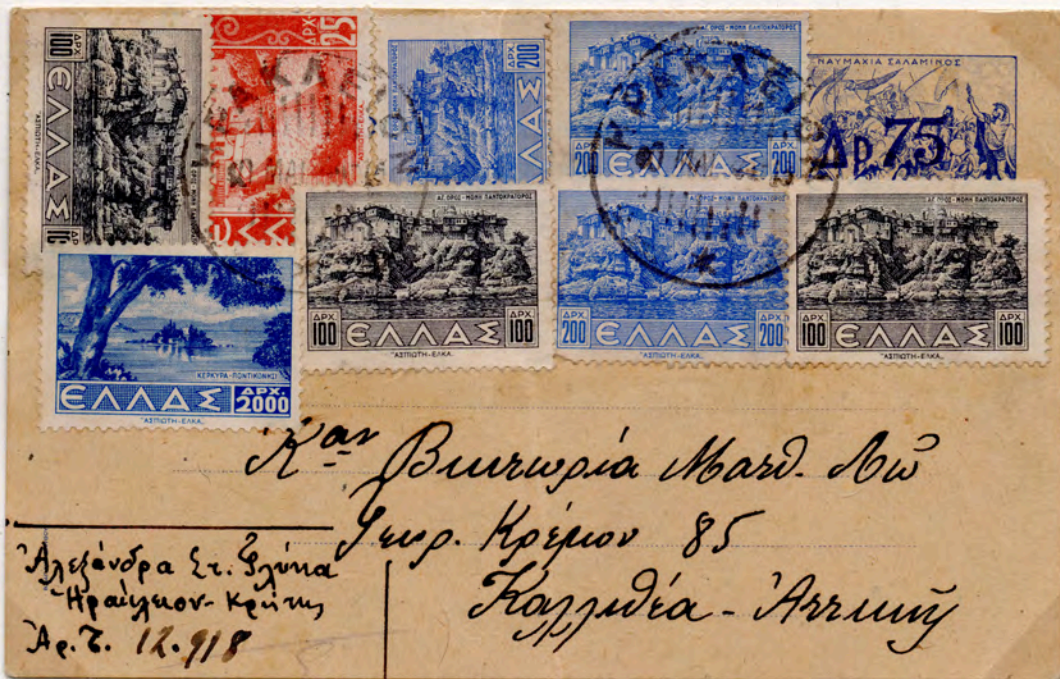 ΔΡΧ 100
ΕΛΛΑΣ
ΔΡΧ
"ΑΣΠΙΩΤΗ-ΕΛΚΑ"
ΔΡΧ 25
ΔΡΧ 200
ΕΛΛΑΣ
ΑΓ. ΟΡΟΣ - ΜΟΝΗ ΠΑΝΤΟΚΡΑΤΟΡΟΣ
ΔΡΧ 200 ΕΛΛΑΣ ΔΡΧ 200
ΝΑΥΜΑΧΙΑ ΣΑΛΑΜΙΝΟΣ
Δρ 75
ΗΡΑΚΛΕΙΟΝ
ΗΡΑΚΛΕΙΟΝ
ΑΓ. ΟΡΟΣ - ΜΟΝΗ ΠΑΝΤΟΚΡΑΤΟΡΟΣ
ΔΡΧ 100 ΕΛΛΑΣ ΔΡΧ 100
"ΑΣΠΙΩΤΗ-ΕΛΚΑ"
ΑΓ. ΟΡΟΣ - ΜΟΝΗ ΠΑΝΤΟΚΡΑΤΟΡΟΣ
ΔΡΧ 200 ΕΛΛΑΣ ΔΡΧ 200
"ΑΣΠΙΩΤΗ-ΕΛΚΑ"
ΑΓ. ΟΡΟΣ - ΜΟΝΗ ΠΑΝΤΟΚΡΑΤΟΡΟΣ
ΔΡΧ 100 ΕΛΛΑΣ ΔΡΧ 100
"ΑΣΠΙΩΤΗ-ΕΛΚΑ"
ΚΕΡΚΥΡΑ - ΠΟΝΤΙΚΟΝΗΣΙ
ΕΛΛΑΣ ΔΡΧ. 2000
"ΑΣΠΙΩΤΗ-ΕΛΚΑ"
Καν Βικτωρία Ματθ.
Γεωρ. Κρέμου 85
Καλλιθέα - Ἀττικῆς
Ἀλεξάνδρα Στ.
Ἡράκλειον - Κρήτης
Ἀρ. Τ. 12.918